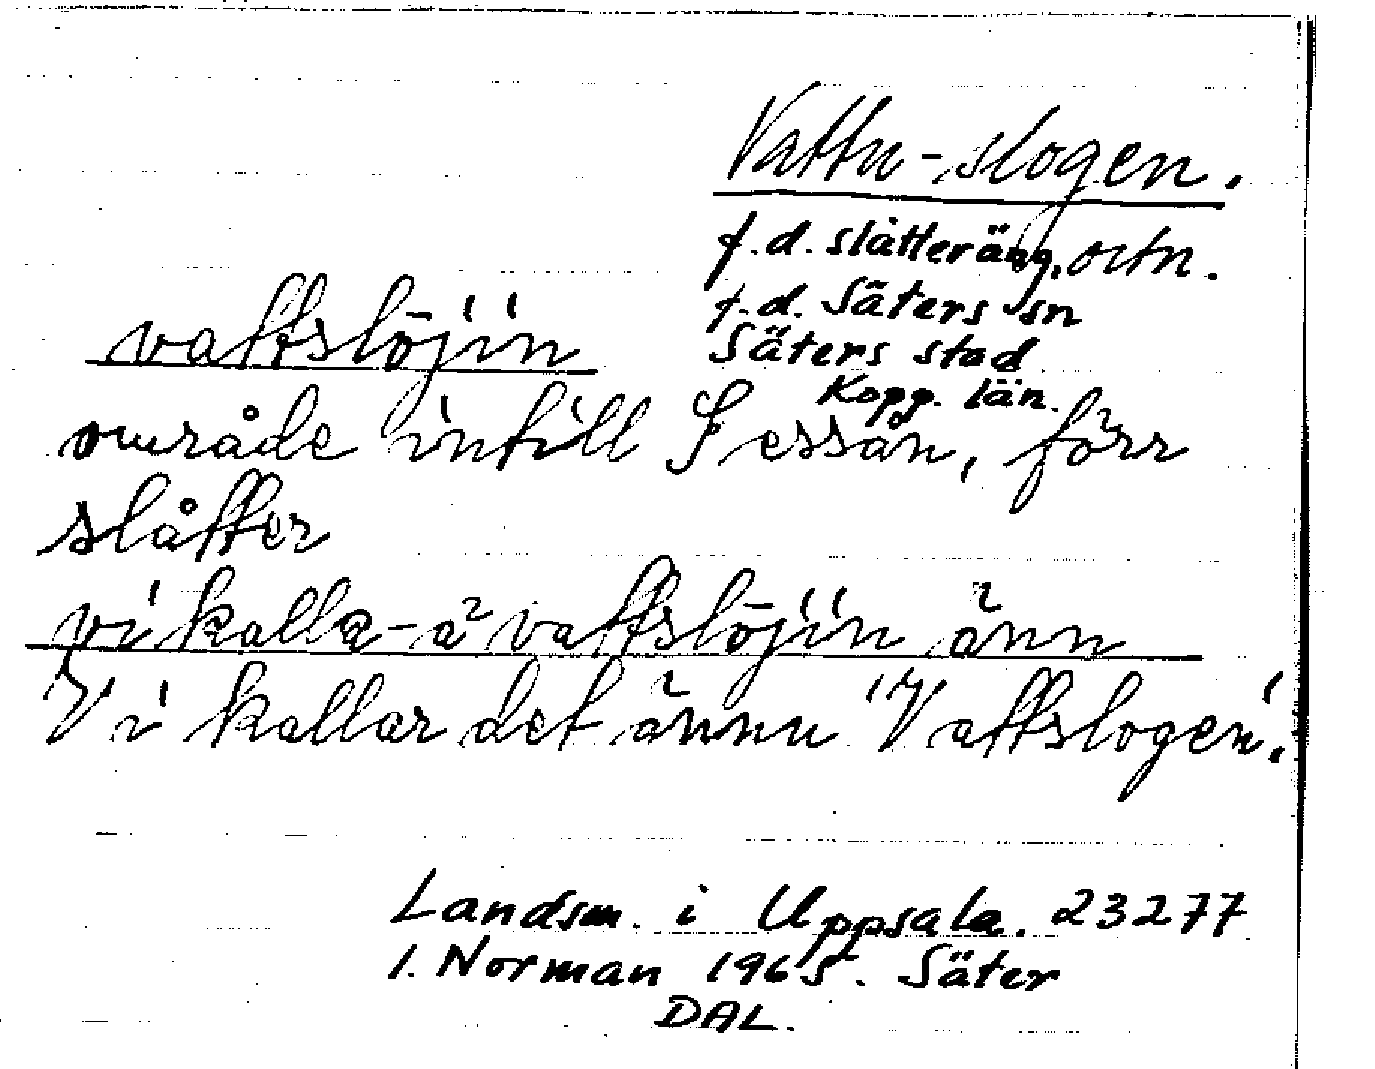 Vattu-slogen.
f.d. slåtteräng, ortn.
f.d. Säters sn
Säters stad
Kopp. län.
vattslōjin
område intill Jessan, förr
slåtter
vi kalla-a² vattslōjin änn
Vi kallar det ännu 'Vattslogen'.
Landsm. i Uppsala. 23277
I. Norman 1965. Säter
DAL.